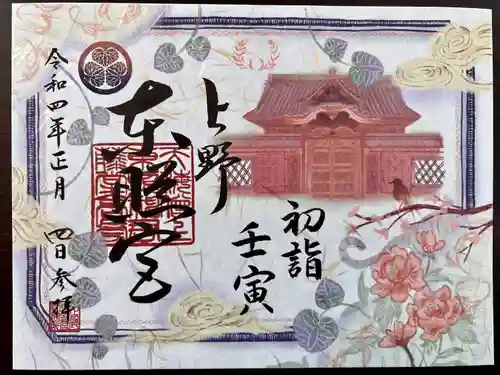 初詣
壬寅
上野
東照宮
令和四年正月 四日参拝